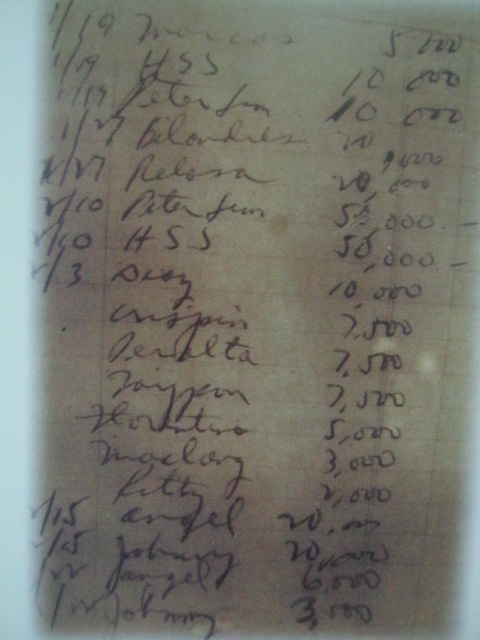 1/19 Marcos 5 000
1/19 HSS 10 000
1/19 Peter Lim 10 000
1/27 20,000
1/27 Relosa 20,000
2/10 Peter Lim 55,000 -
2/10 HSS 50,000 -
2/3 10,000
Crispin 7,500
Peralta 7,500
7,500
Florentino 5,000
3,000
Letty 2,000
2/15 angel 20,000
2/15 Johnny 20,000
2/22 angel 6,000
2/22 Johnny 3,000